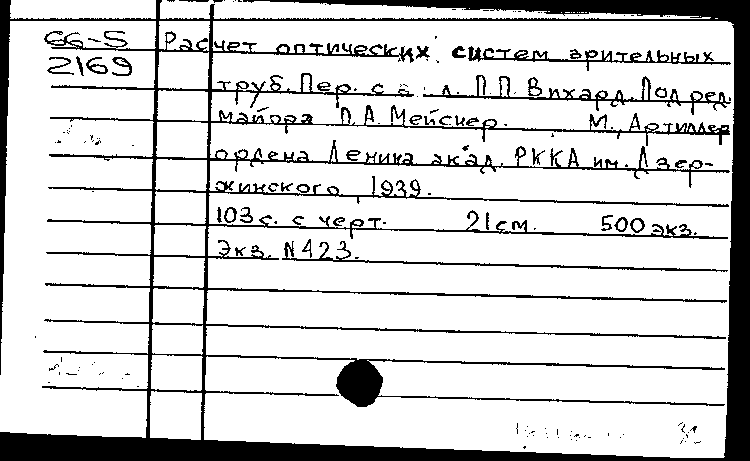 66-5 Расчет оптических систем зрительных
2169
труб. Пер. с а л. П.П. Вихард. Под ред.
майора П.А. Мейснер. М., Артиллер
ордена Ленина акад. РККА им. Дзер-
жинского, 1939.
103 с. с черт. 21 см. 500 экз.
Экз. N423.